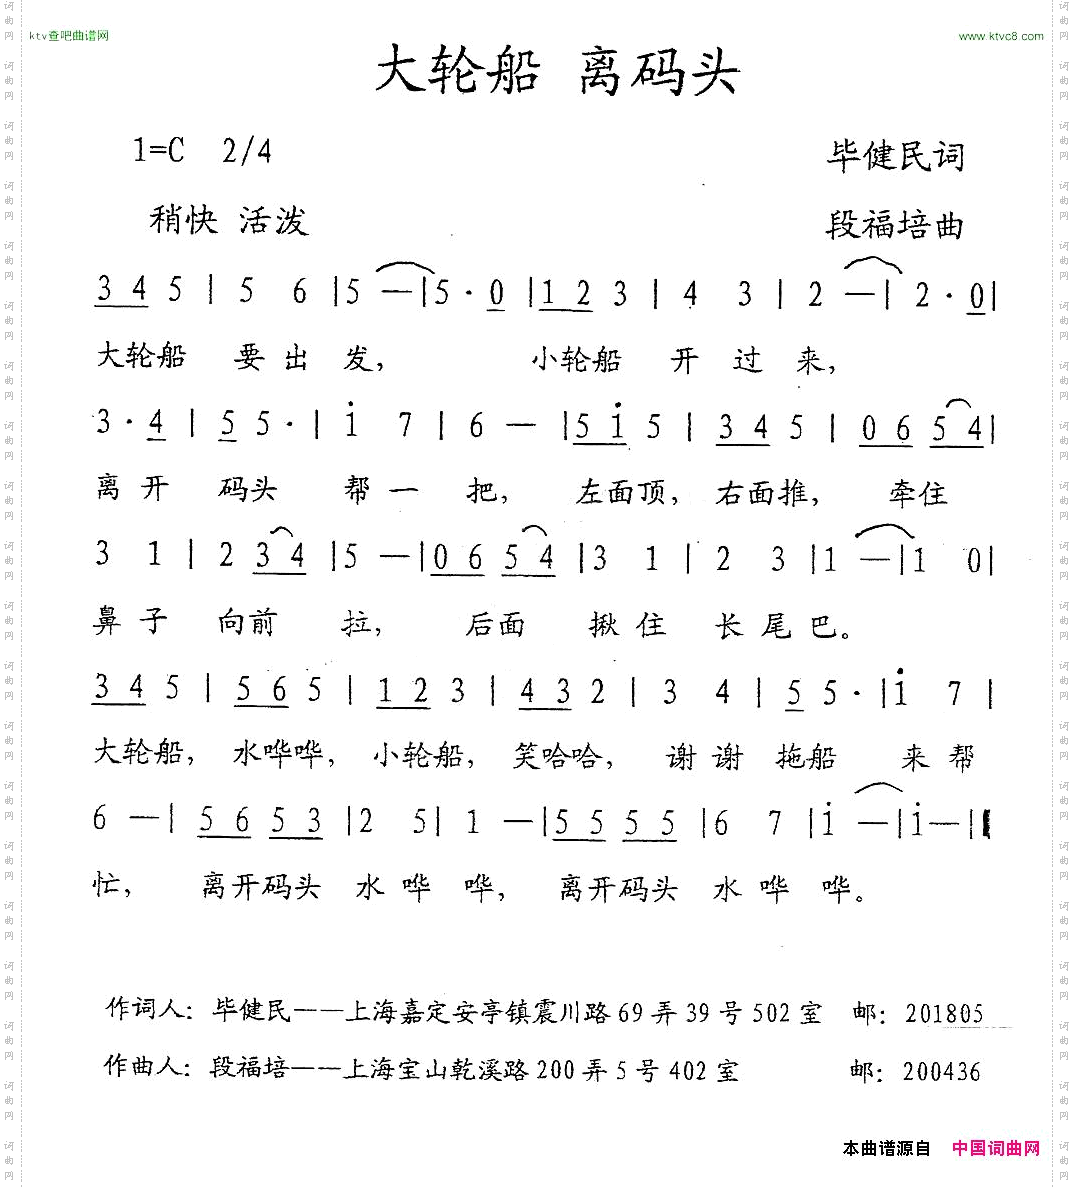 ktv查吧曲谱网
www.ktvc8.com
大轮船 离码头
1=C 2/4
毕健民词
稍快 活泼
段福培曲
3 4 5 | 5 6 | 5 — | 5 · 0 | 1 2 3 | 4 3 | 2 — | 2 · 0 |
大轮船 要出发, 小轮船 开过来,
3 · 4 | 5 5 · | i 7 | 6 — | 5 i 5 | 3 4 5 | 0 6 5 4 |
离开 码头 帮一 把, 左面顶, 右面推, 牵住
3 1 | 2 3 4 | 5 — | 0 6 5 4 | 3 1 | 2 3 | 1 — | 1 0 |
鼻子 向前 拉, 后面 揪住 长尾巴。
3 4 5 | 5 6 5 | 1 2 3 | 4 3 2 | 3 4 | 5 5 · | i 7 |
大轮船, 水哗哗, 小轮船, 笑哈哈, 谢谢 拖船 来帮
6 — | 5 6 5 3 | 2 5 | 1 — | 5 5 5 5 | 6 7 | i — | i — ||
忙, 离开码头 水哗 哗, 离开码头 水哗 哗。
作词人: 毕健民——上海嘉定安亭镇震川路69弄39号502室 邮: 201805
作曲人: 段福培——上海宝山乾溪路200弄5号402室 邮: 200436
本曲谱源自 中国词曲网
词曲网